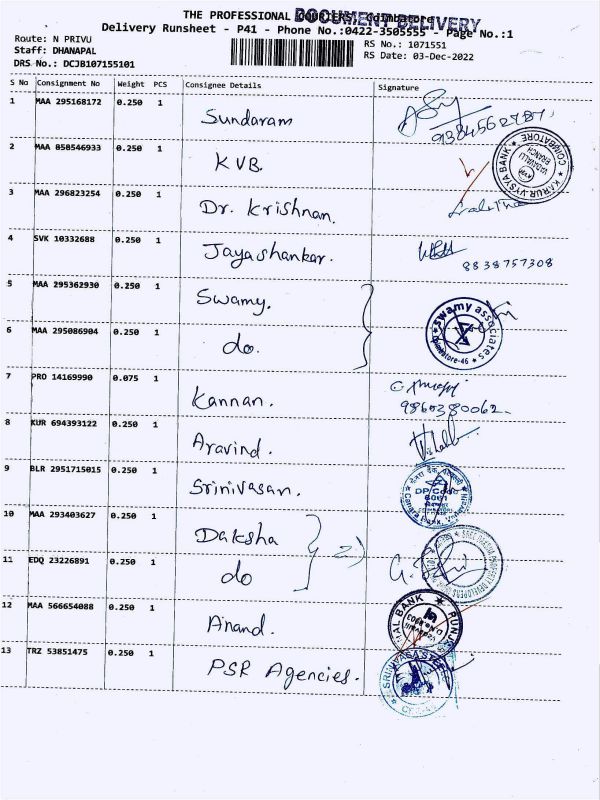 THE PROFESSIONAL COURIERS, Coimbatore
DOCUMENT DELIVERY
Delivery Runsheet - P41 - Phone No.:0422-3505555 - Page No.:1
Route: N PRIVU
RS No.: 1071551
Staff: DHANAPAL
RS Date: 03-Dec-2022
DRS No.: DCJB107155101
S No Consignment No Weight PCS Consignee Details Signature
1 MAA 295168172 0.250 1 Sundaram
2 MAA 858546933 0.250 1 KVB KARUR VYSYA BANK COIMBATORE VADAVALLI BRANCH
3 MAA 296823254 0.250 1 Dr. Krishnan.
4 SVK 10332688 0.250 1 Jayashankar. 8838757308
5 MAA 295362930 0.250 1 Swamy. swamy associates Coimbatore-46
6 MAA 295086904 0.250 1 do.
7 PRO 14169990 0.075 1 Kannan. 9860380062
8 KUR 694393122 0.250 1 Aravind.
9 BLR 2951715015 0.250 1 Srinivasan. DP Code Canara Bank
10 MAA 293403627 0.250 1 Daksha
11 EDQ 23226891 0.250 1 do
12 MAA 566654088 0.250 1 Anand.
13 TRZ 53851475 0.250 1 PSR Agencies.